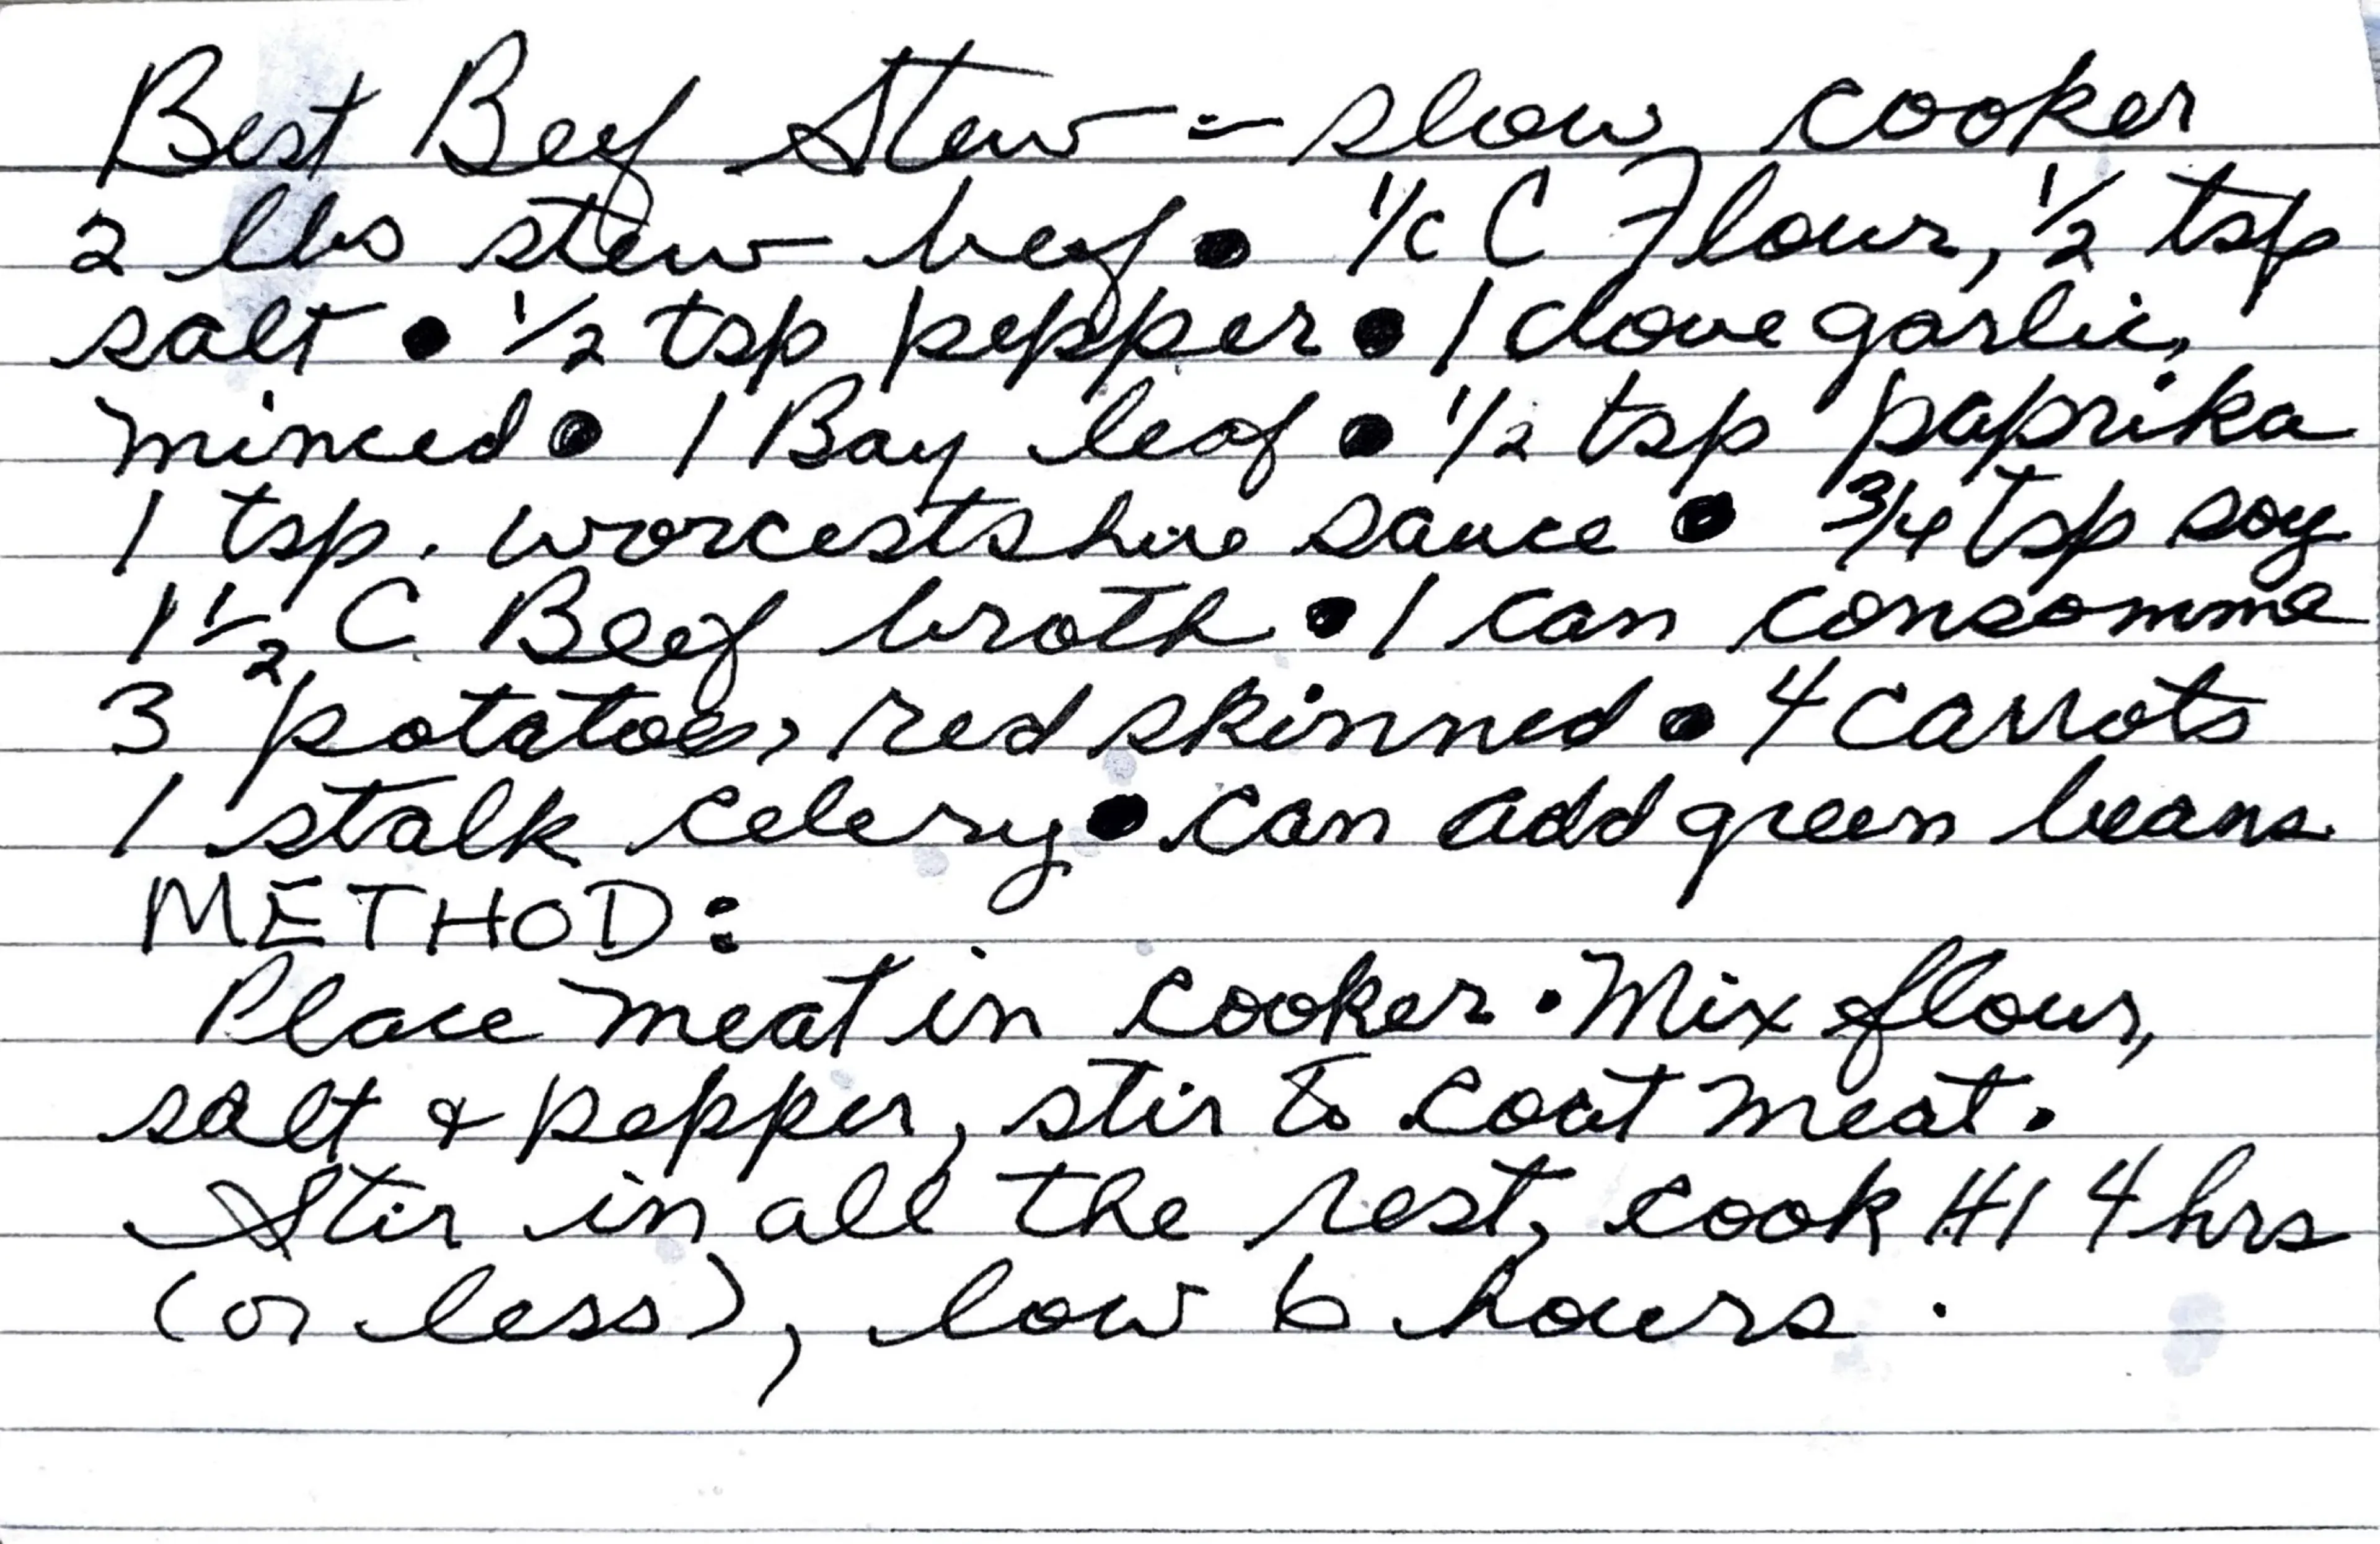 Best Beef Stew - slow cooker
2 lbs stew beef • C Flour, 1/2 tsp
salt • 1/2 tsp pepper • 1 clove garlic,
minced • 1 Bay leaf • 1/2 tsp paprika
1 tsp. worcestshire sauce • 3/4 tsp soy
1 1/2 C Beef broth • 1 can consomme
3 potatoes, red skinned • 4 carrots
1 stalk celery • can add green beans
METHOD:
Place meat in cooker • Mix flour,
salt & pepper, stir to coat meat.
Stir in all the rest, cook HI 4 hrs
(or less), low 6 hours.